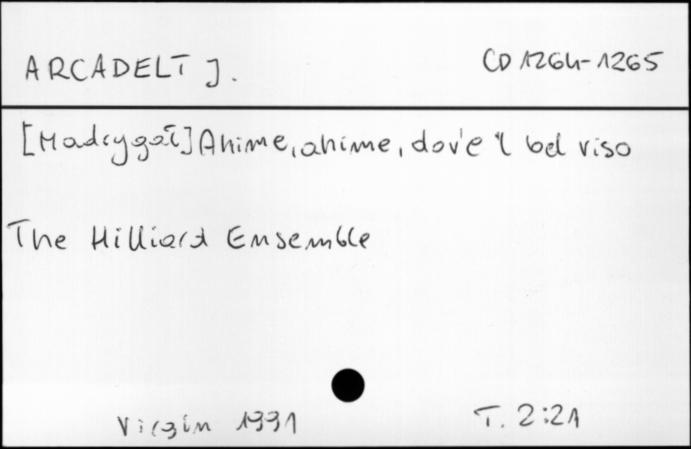 ARCADELT J.
CD 1264-1265
[Madrygał] Ahime, ahime, dov'e 'l bel viso
The Hilliard Ensemble
Virgin 1991
T. 2:21